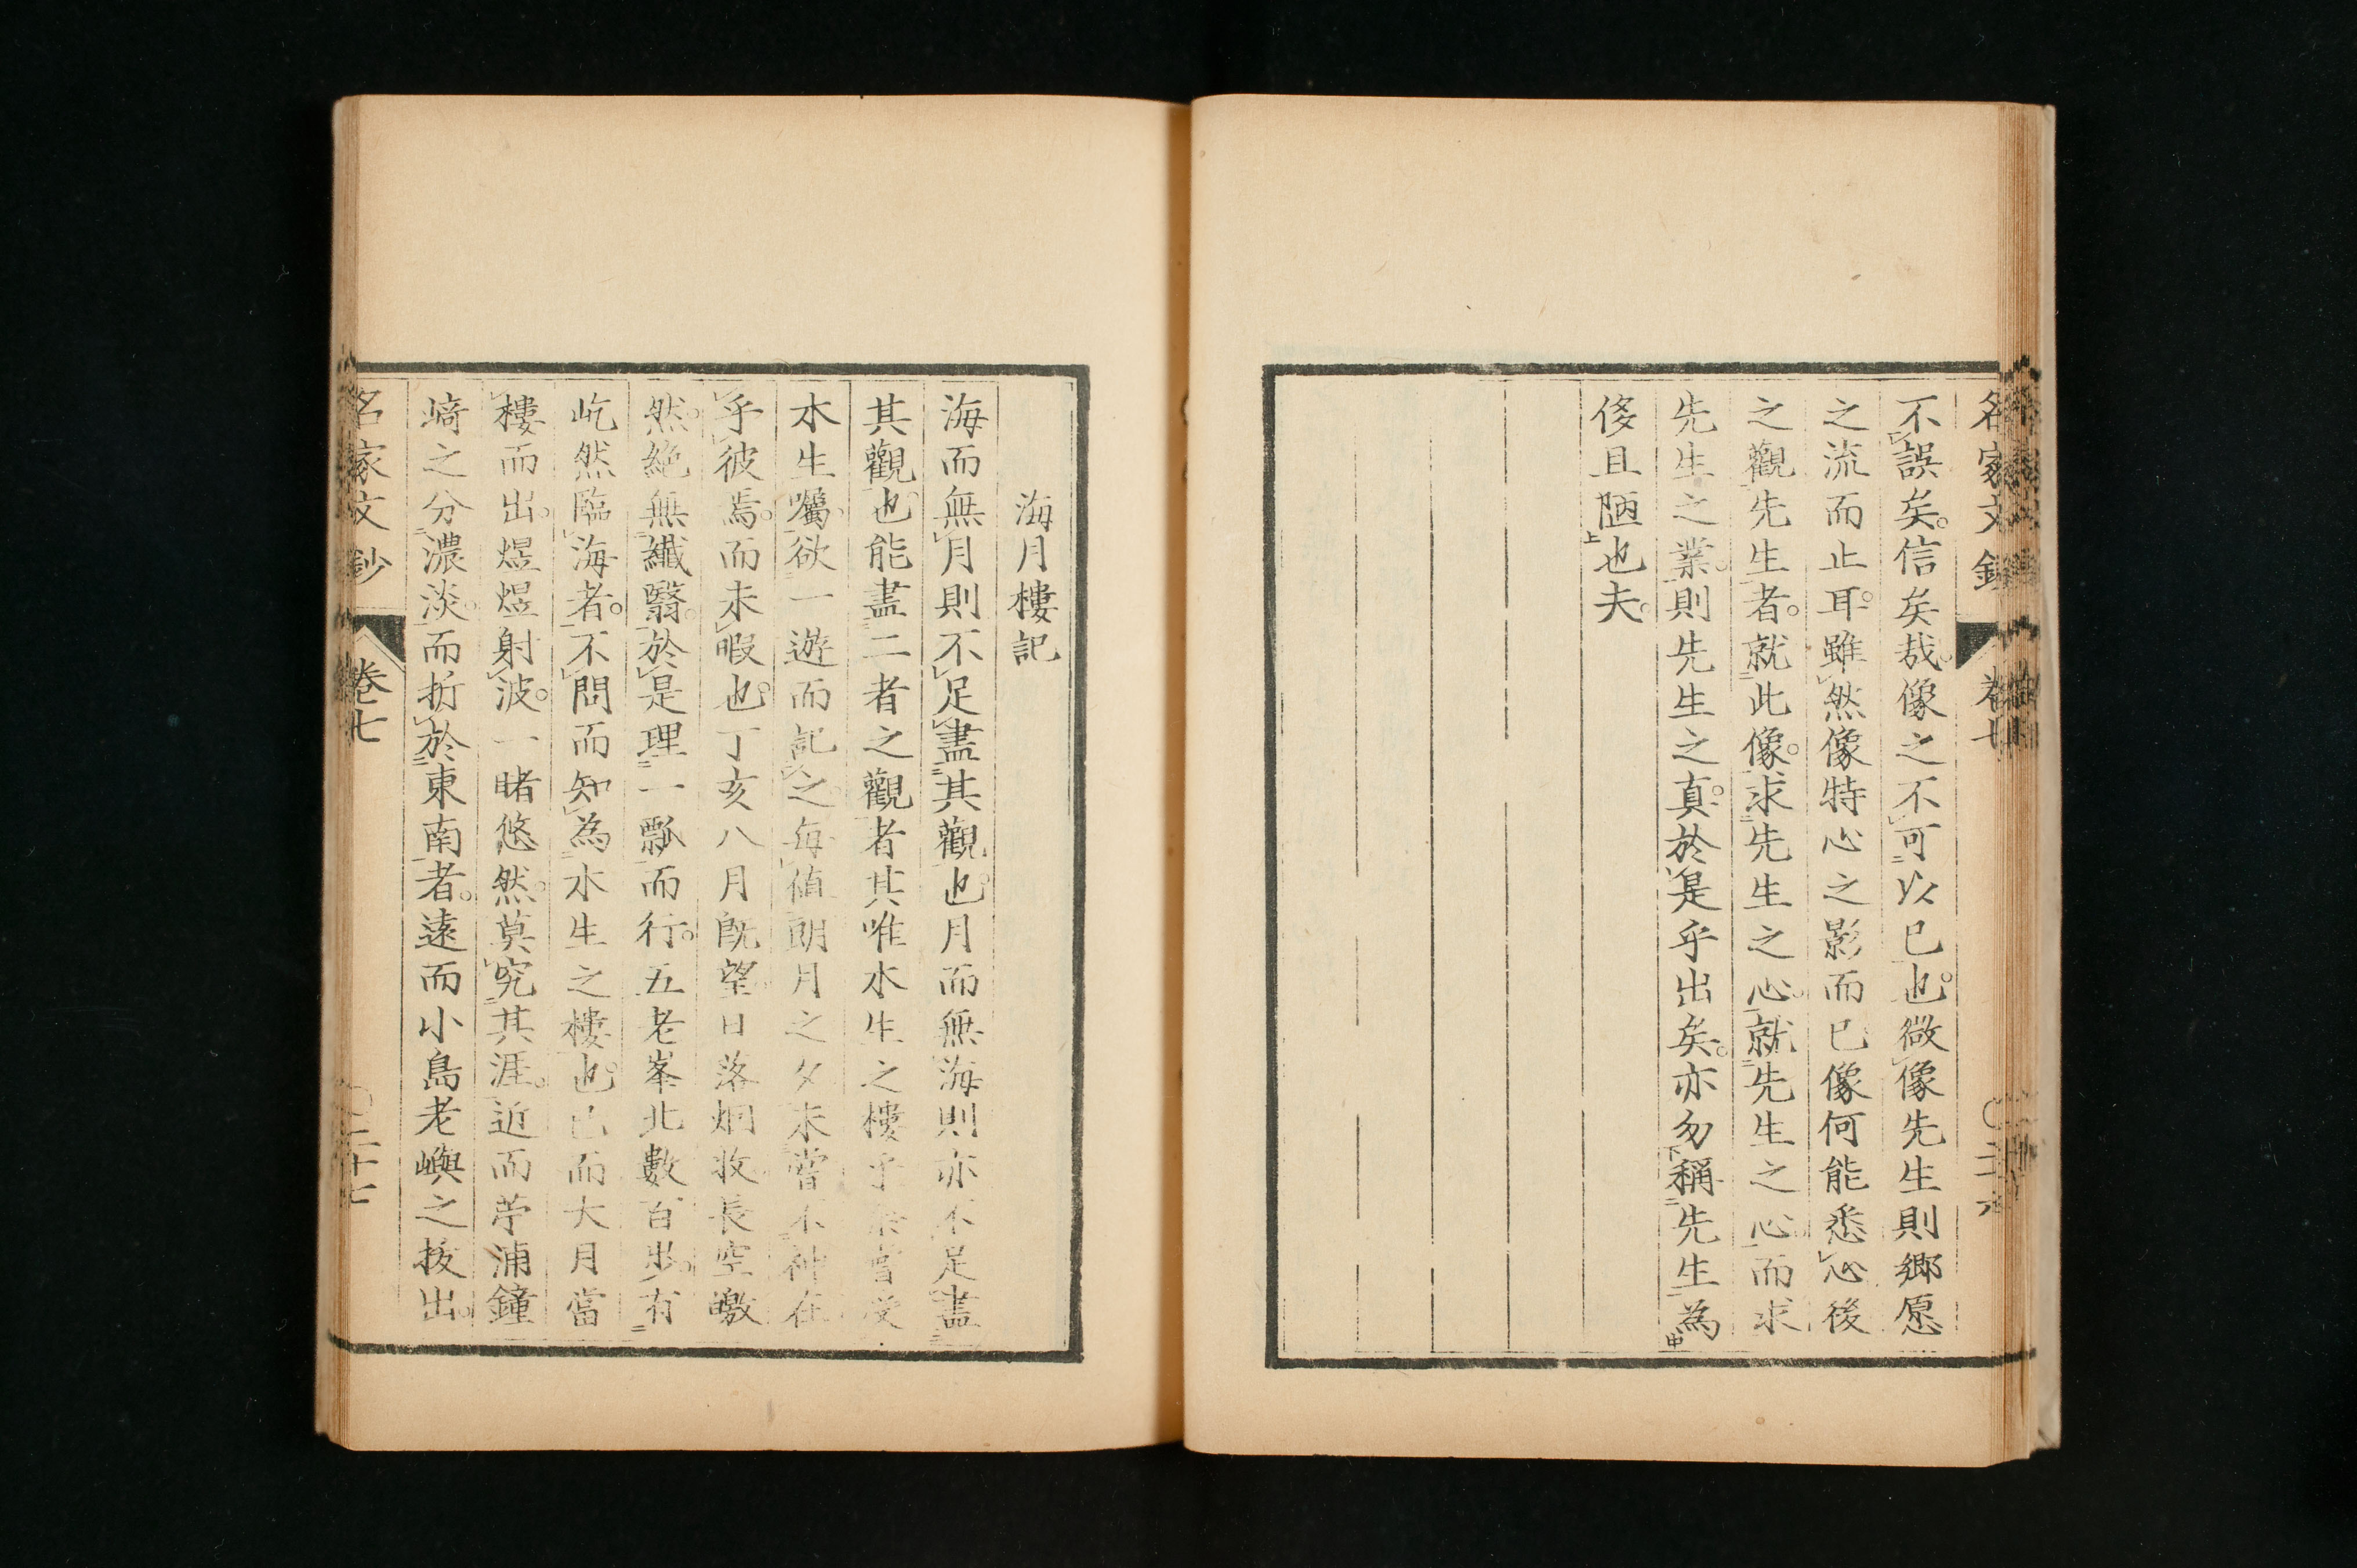 名家文鈔 卷七 〇二十六
不誤矣。信矣哉。像之不可以已也。微像先生則鄉愿
之流而止耳。雖然像特心之影而已像何能悉心後
之觀先生者。就此像。求先生之心。就先生之心。而求
先生之業。則先生之真。於是乎出矣。亦勿稱先生為
侈且陋也夫。
海月樓記
海而無月則不足盡其觀也。月而無海則亦不足盡
其觀也。能盡二者之觀者其唯水生之樓乎余嘗受
水生囑。欲一遊而記之。每值朗月之夕未嘗不神在
乎彼焉。而未暇也。丁亥八月既望。日落烟收。長空皦
然。絕無纖翳。於是理一瓢而行。五老峯北數百步。有
屹然臨海者。不問而知為水生之樓也。已而大月當
樓而出。煜煜射波。一睹悠然。莫究其涯。近而茅浦鐘
﨑之分濃淡。而折於東南者。遠而小島老嶼之拔出。
名家文鈔 卷七 〇二十七